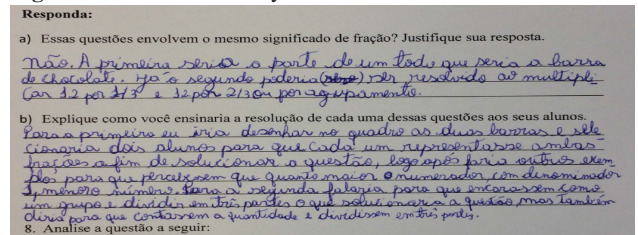 Responda:
a) Essas questões envolvem o mesmo significado de fração? Justifique sua resposta.
Não. A primeira seria a parte de um todo que seria a barra
de chocolate. Ja a segunda poderia ser resolvido ao multipli-
car 12 por 1/3 e 12 por 2/3 ou por agrupamento.
b) Explique como você ensinaria a resolução de cada uma dessas questões aos seus alunos.
Para a primeira eu iria desenhar no quadro as duas barras e sele
cionaria dois alunos para que cada um representasse ambas
frações a fim de solucionar a questão, logo após faria outros exem
plos para que percebessem que quanto maior o numerador, com denominador
menor o número. Para a segunda falaria para que encarassem como
um grupo e dividir em três partes o que solucionaria a questão, mas também
diria para que contassem a quantidade e dividissem em três partes.
8. Analise a questão a seguir: